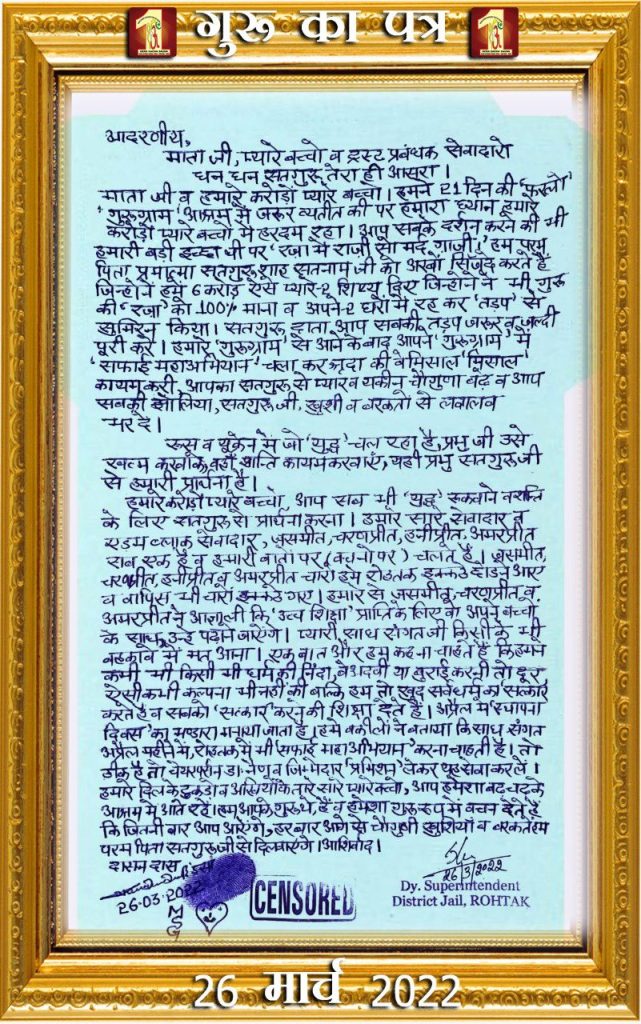 गुरू का पत्र
आदरणीय,
माता जी, प्यारे बच्चो व ट्रस्ट प्रबंधक सेवादारो
धन धन सतगुरू तेरा ही आसरा।
माता जी व हमारे करोड़ों प्यारे बच्चो। हमने 21 दिन की 'फरलो'
'गुरूग्राम' आश्रम में जरूर व्यतीत की पर हमारा ध्यान हमारे
करोड़ों प्यारे बच्चों में हरदम रहा। आप सबके दर्शन करने की भी
हमारी बड़ी इच्छा थी पर 'रजा में राजी सो मर्द गाजी।' हम परम
पिता प्रमात्मा सतगुरू शाह सतनाम जी को अरबों सिजूद करते हैं
जिन्होंने हमें 6 करोड़ ऐसे प्यारे-2 शिष्य दिए जिन्होंने भी गुरू
की 'रजा' को 100% माना व अपने-2 घरों में रह कर 'तड़प' से
सुमिरन किया। सतगुरू दाता आप सबकी तड़प जरूर व जल्दी
पूरी करें। हमारे 'गुरूग्राम' से आने के बाद आपने 'गुरूग्राम' में
'सफाई महाअभियान' चला कर श्रद्धा की बेमिसाल 'मिसाल'
कायम करी, आपका सतगुरू से प्यार व यकीन चौगुणा बढ़े व आप
सबकी झोलियां, सतगुरू जी, खुशी व बरकतों से लबालब
भर दें।
रूस व यूक्रेन में जो 'युद्ध' चल रहा है, प्रभु जी उसे
खत्म करवाके, वहां शान्ति कायम करवाएं, यही प्रभु सतगुरू जी
से हमारी प्रार्थना है।
हमारे करोड़ों प्यारे बच्चो, आप सब भी 'युद्ध' रूकवाने व शान्ति
के लिए सतगुरू से प्रार्थना करना। हमारे सारे सेवादार व
एडम ब्लाक सेवादार, जसमीत, चरणप्रीत, हनीप्रीत, अमरप्रीत
सब एक हैं व हमारी बातों पर (वचनों पर) चलते हैं। जसमीत,
चरणप्रीत, हनीप्रीत, व अमरप्रीत चारों हमें रोहतक इकठ्ठे छोडने आए
व वापिस भी चारों इकठ्ठे गए। हमारे से जसमीत, चरणप्रीत, व
अमरप्रीत ने आज्ञा ली कि 'उच्च शिक्षा' प्राप्ति के लिए वो अपने बच्चों
के साथ उन्हें पढ़ाने जाएंगे। प्यारी साध संगत जी किसी के भी
बहकावे में मत आना। एक बात और हम कहना चाहते हैं कि हमने
कभी भी किसी भी धर्म की निंदा, बेअदबी या बुराई करनी तो दूर
ऐसी कभी कल्पना भी नहीं की बल्कि हम तो खुद सर्वधर्म का सत्कार
करते हैं व सबको 'सत्कार' करने की शिक्षा देते हैं। अप्रैल में 'स्थापना
दिवस' का भण्डारा मनाया जाता है। हमें वकीलों ने बताया कि साध संगत
अप्रैल महीने में, रोहतक में भी 'सफाई महा अभियान' करना चाहती है। तो
ठीक है तो चेयरपर्सन डा. नैन व जिम्मेदार 'प्रमिशन' लेकर यह सेवा कर लें।
हमारे दिल के टुकड़ो व आँखियों के तारे सारे प्यारे बच्चो, आप हमेशा बढ़ चढ़ के
आश्रम में आते रहें। हम आपके गुरू थे, हैं व हमेशा गुरू रूप में वचन देते हैं
कि जितनी बार आप आएंगे, हर बार आगे से चौगुणी खुशियां व बरकतें हम
परम पिता सतगुरू जी से दिलवाएंगे। आशीर्वाद।
दासन दास
26-03-2022
MSG
CENSORED
26/3/2022
Dy. Superintendent
District Jail, ROHTAK
26 मार्च 2022